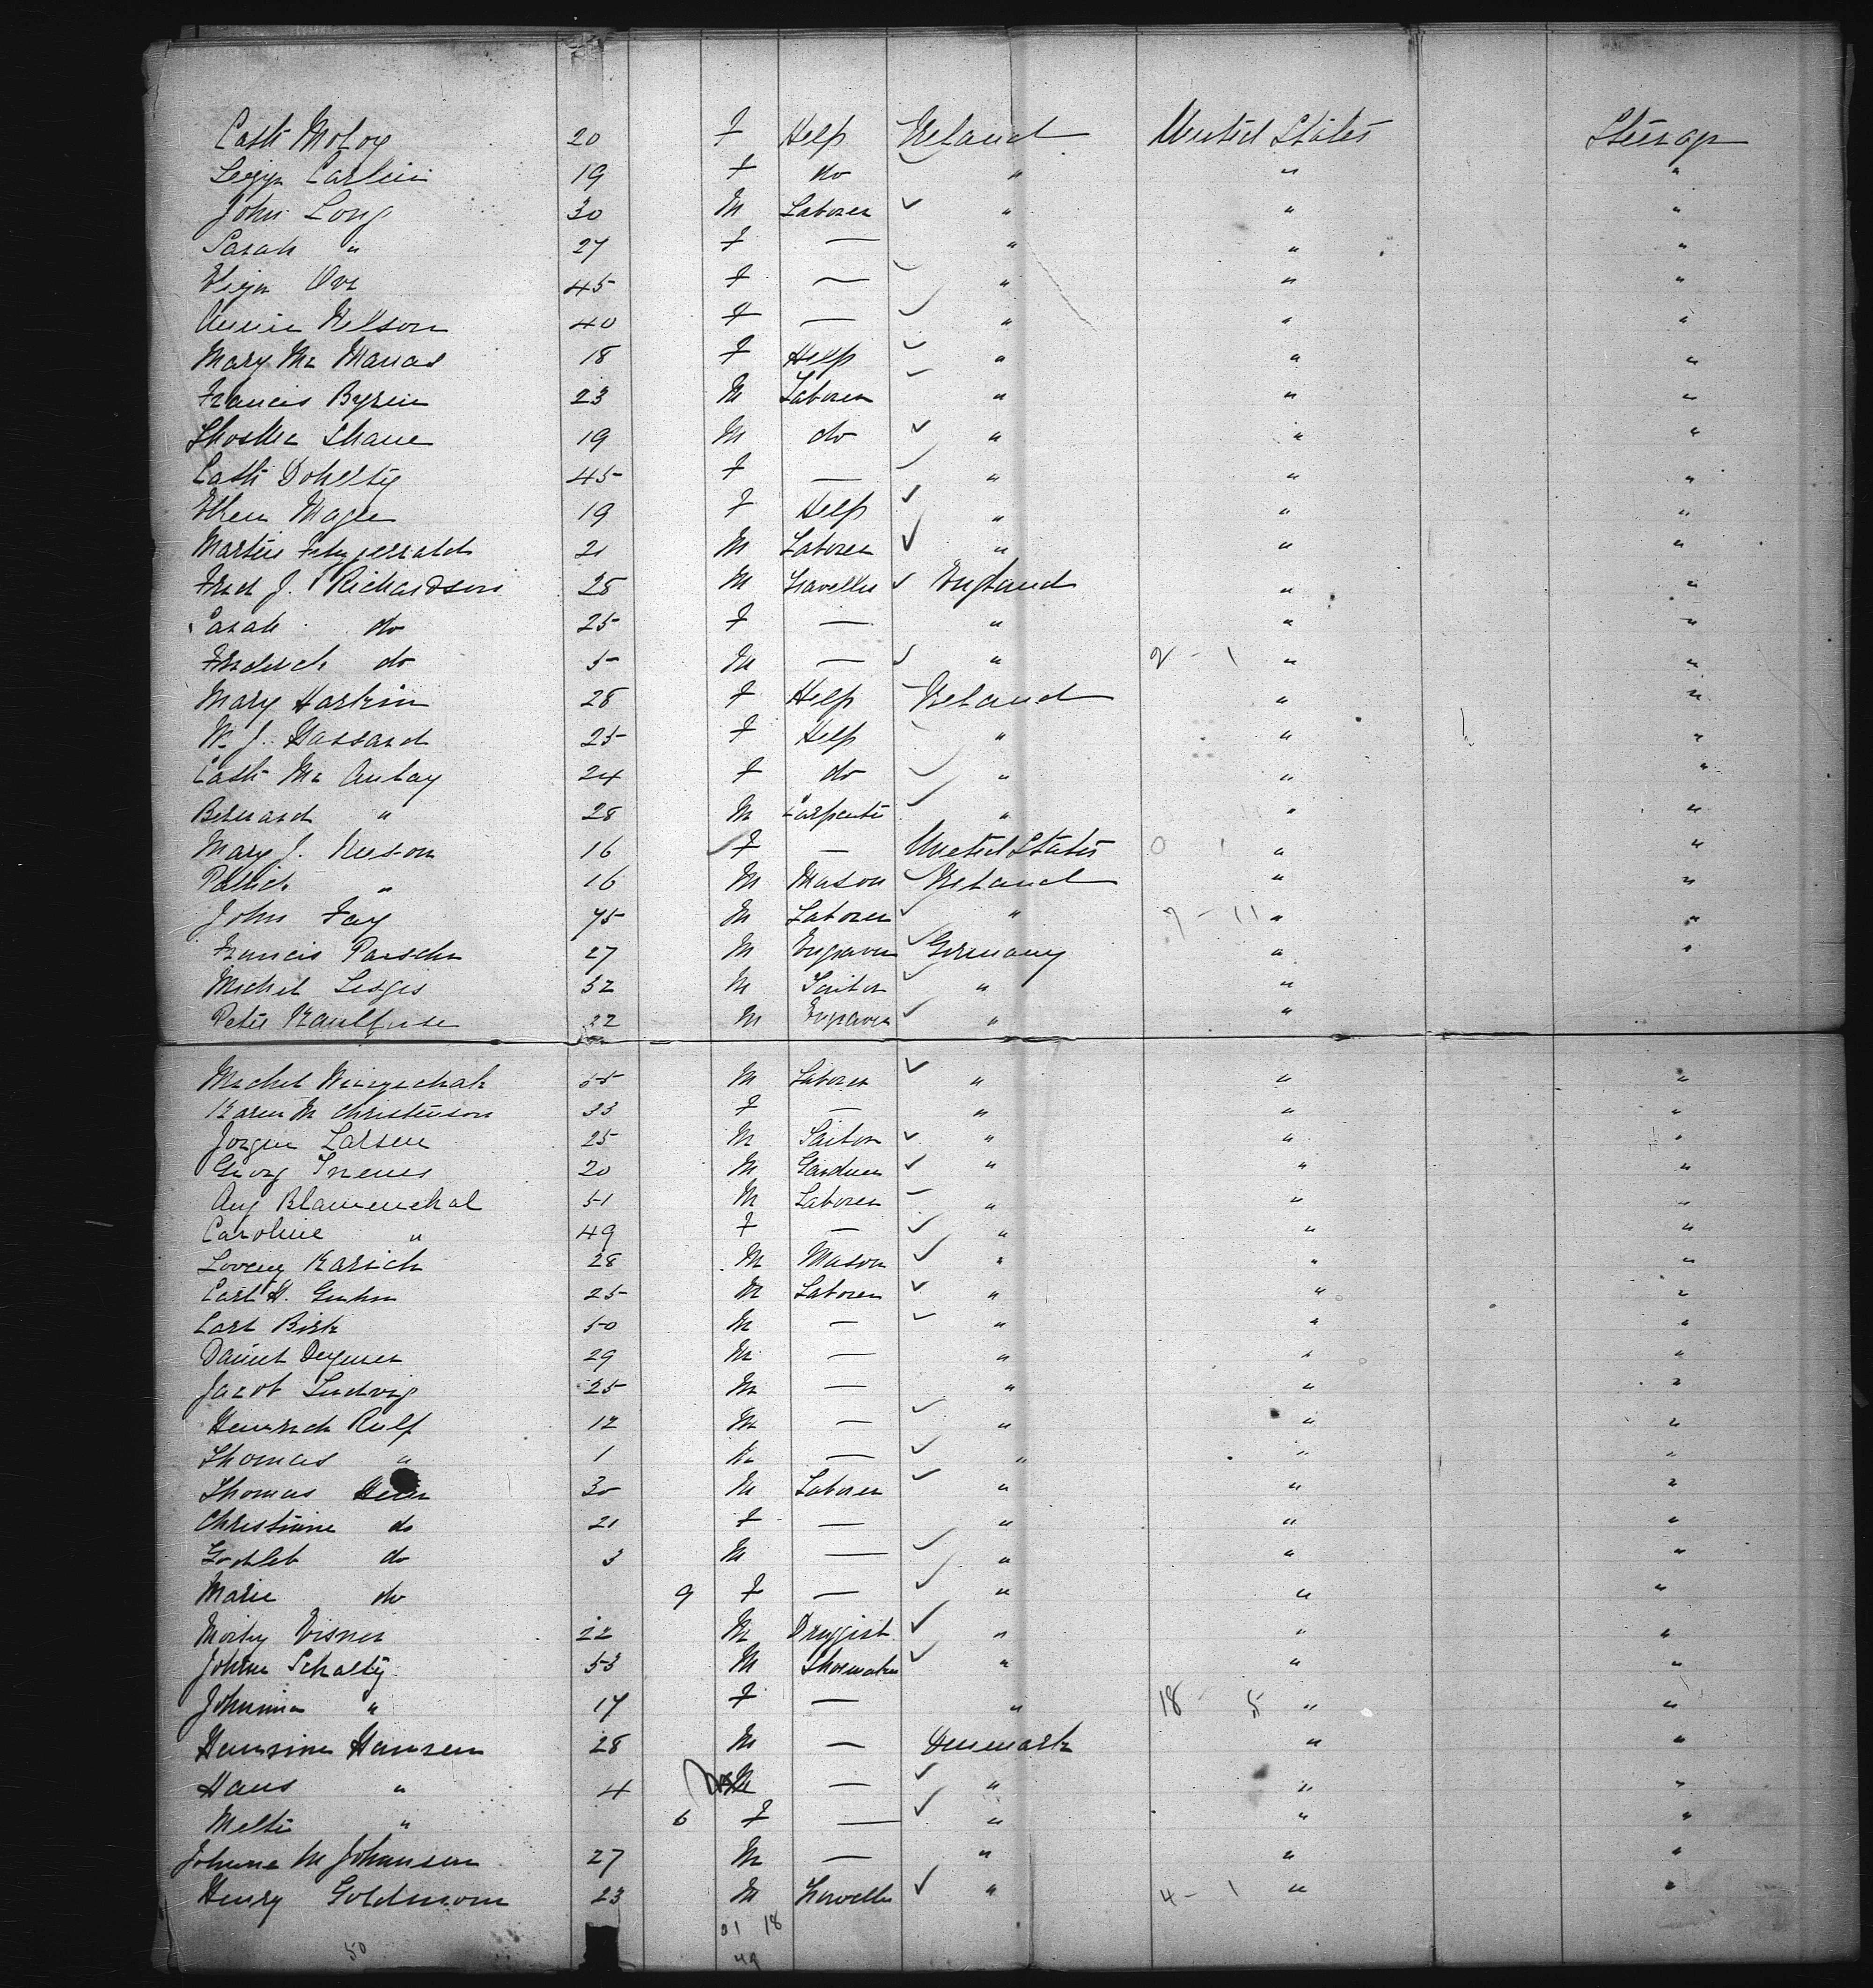 Cath McLoy 20 F Help Ireland United States Steerage
Lizzie Carlin 19 F do " " "
John Long 30 M Laborer " " "
Sarah " 27 F — " " "
Eliza Orr 45 F — " " "
Annie Nelson 40 F — " " "
Mary Mc Manas 18 F Help " " "
Francis Byrne 23 M Laborer " " "
Shane 19 M do " " "
Cath Doherty 45 F — " " "
Ellen Magee 19 F Help " " "
Martin Fitzgerrald 21 M Laborer " " "
Fred J. Richardson 28 M Traveller England " "
Sarah do 25 F — " " "
Frederick do 5 M — " 2 - 1 " "
Mary Harkin 28 F Help Ireland " "
W. J. Hassard 25 F Help " " "
Cath Mc Aulay 24 F do " " "
Bernard " 28 M Carpenter " " "
Mary J. 16 F — United States 0 1 " "
Patrick " 16 M Mason Ireland " "
John Fay 45 M Laborer " 7 - 11 " "
Francis 27 M Engraver Germany " "
Michel 32 M Tailor " "
Peter Kaulfuse 22 M Engraver " "
Michel 55 M Laborer " " "
Karen M Christenson 33 F — " " "
Jorgen Larsen 25 M Sailor " " "
Georg 20 M Gardner " " "
Aug Blamenthal 51 M Laborer " " "
Caroline " 49 F — " " "
Lorenz Karich 28 M Mason " " "
Carl H. 25 M Laborer " " "
Carl Birk 50 M — " " "
Daniel 29 M — " " "
Jacob Ludvig 25 M — " " "
Heinrich Rulf 12 M — " " "
Thomas " 1 M — " " "
Thomas 30 M Laborer " " "
Christine do 21 F — " " "
Gottleb do 3 M — " " "
Marie do 9 F — " " "
Moritz Eisner 22 M Druggist " " "
Johan Schaltz 53 M Shoemaker " " "
Johanna " 17 F — " 18 - 5 " "
Hansine Hansen 28 M — Denmark " "
Hans " 4 M — " " "
Mette " 6 F — " " "
Johanne M Johansen 27 M — " " "
Henry Goldmom 23 M Traveller " 4 - 1 " "
31 18
50 49